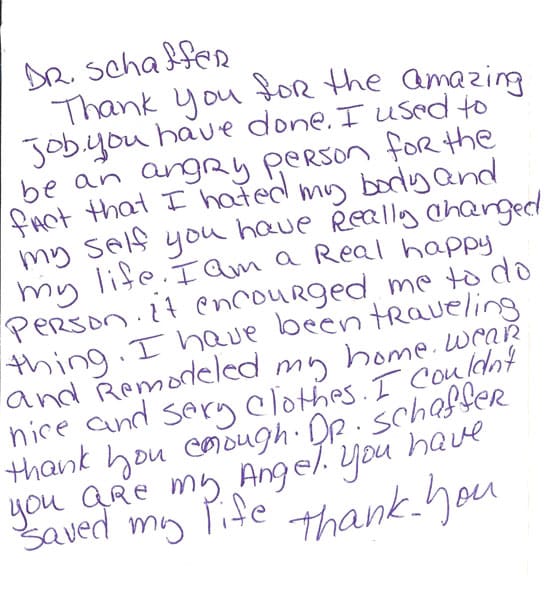 DR. Schaffer
Thank you for the amazing
job. you have done. I used to
be an angry person for the
fact that I hated my body and
my self you have Really changed
my life. I am a Real happy
person. it encourged me to do
thing. I have been traveling
and Remodeled my home. wear
nice and sexy clothes. I couldn't
thank you enough. DR. Schaffer
you are my Angel. you have
saved my life thank-you